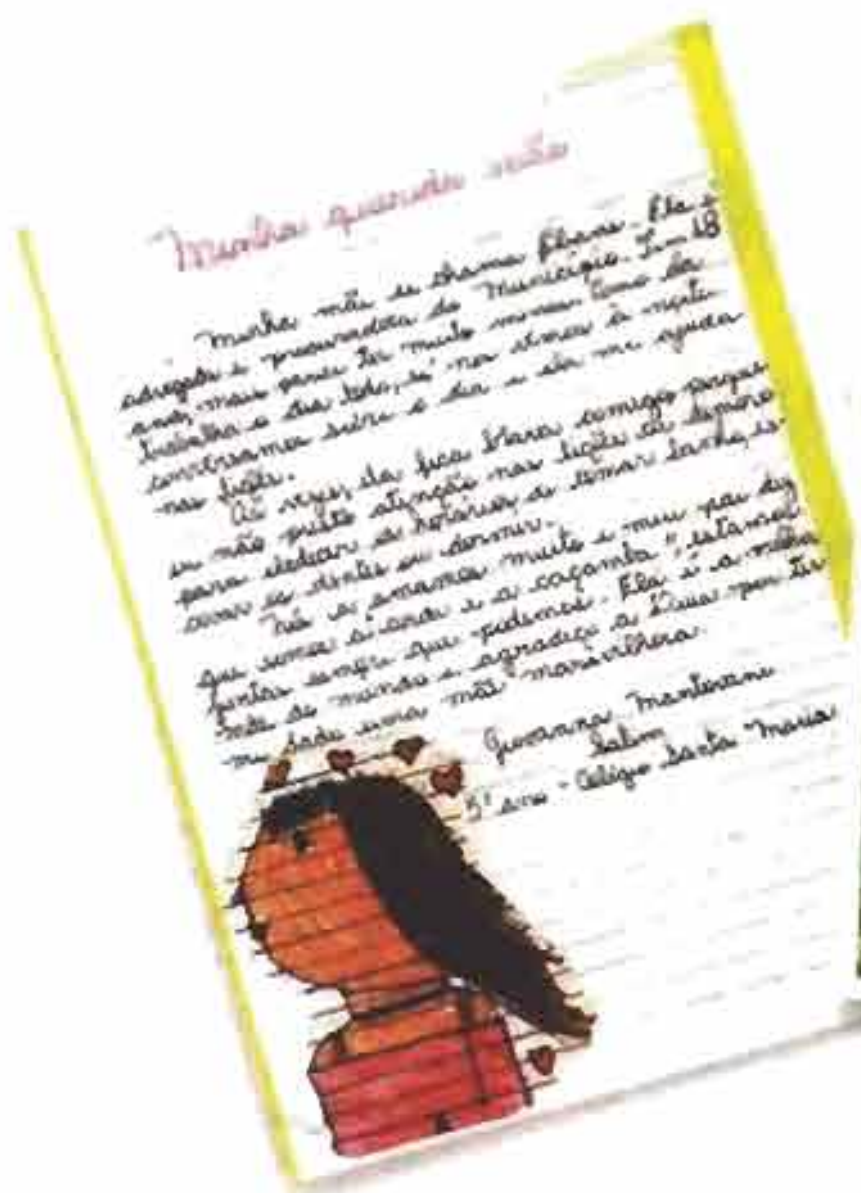 Minha querida mãe
Minha mãe se chama Eliane. Ela é
advogada e procuradora do Município. Tem 48
anos, mais parece ter muito menos. Como ela
trabalha o dia todo, só nos vemos à noite
conversamos sobre o dia e ela me ajuda
nas lições.
Às vezes, ela fica brava comigo porque
eu não presto atenção nas lições ou demoro
para obedecer os horários de tomar banho, es-
covar os dentes ou dormir.
Nós a amamos muito e meu pai diz
que somos "a corda e a caçamba", estamos
juntas sempre que podemos. Ela é a melhor
mãe do mundo e agradeço a Deus por ter
me dado uma mãe maravilhosa.
Giovanna Mantovani
Salim
5º ano - Colégio Santa Maria